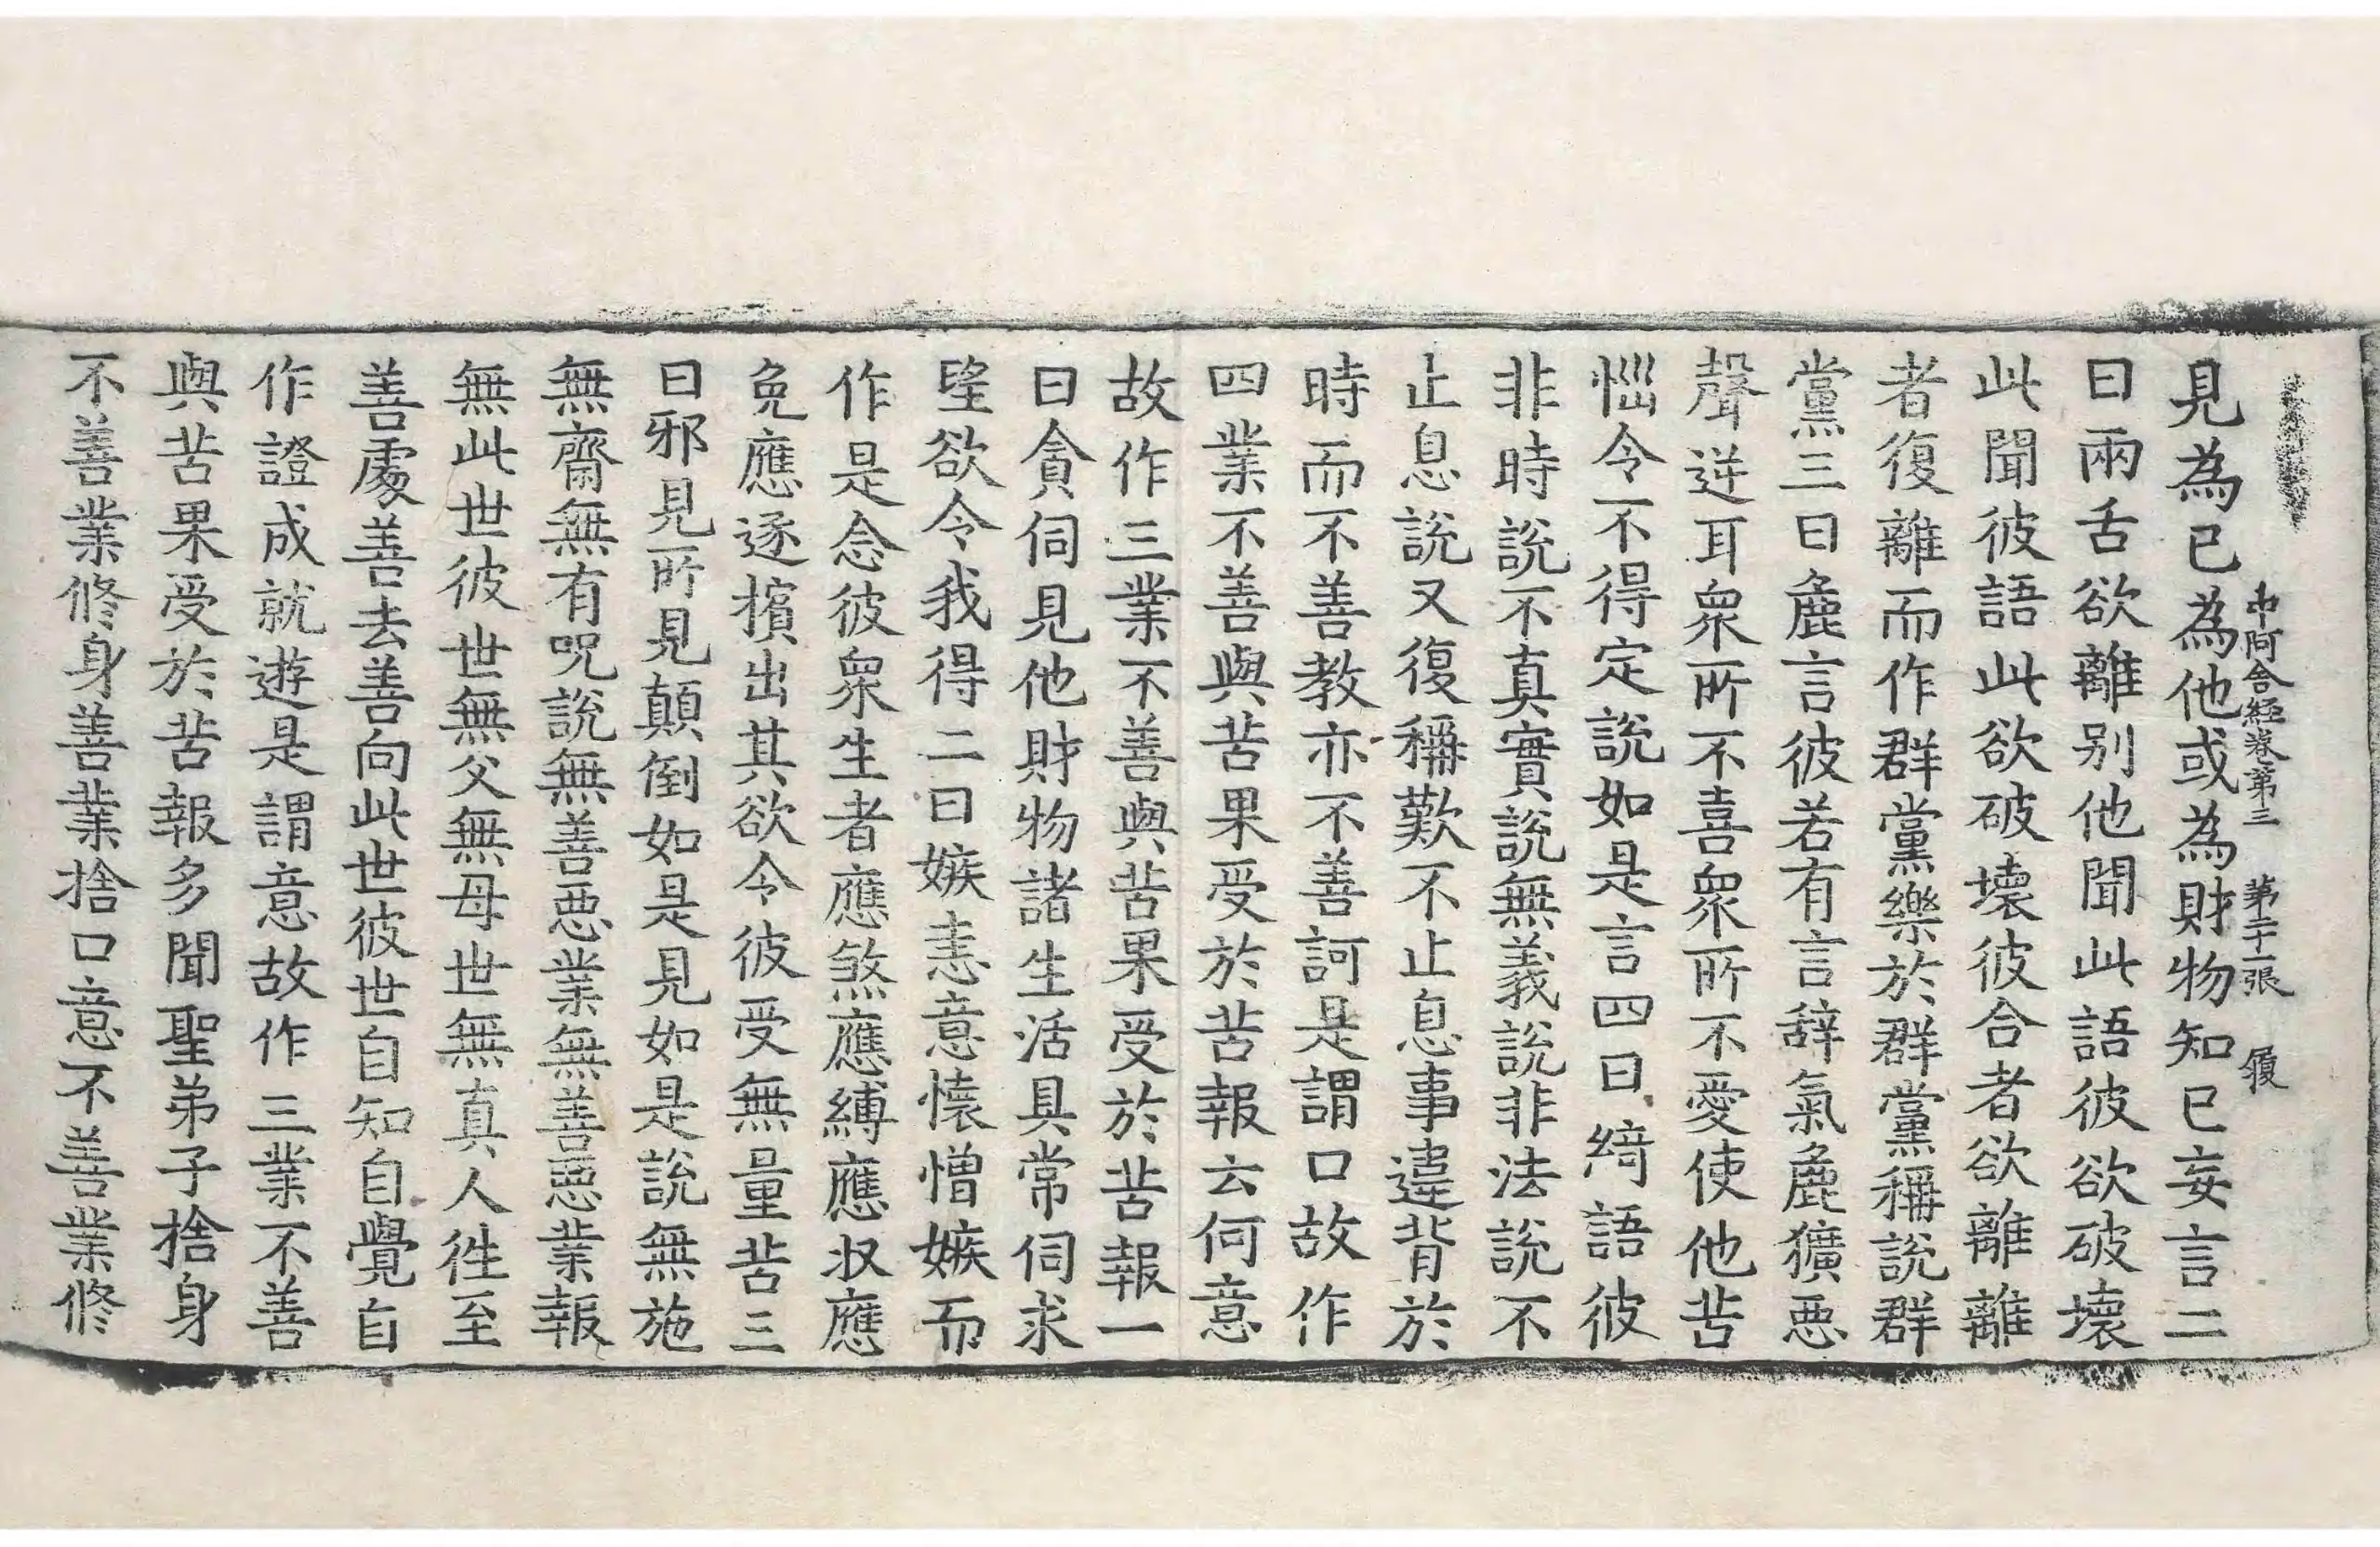 中阿含經卷第三 第二十一張 履
見為已為他或為財物知已妄言二
曰兩舌欲離別他聞此語彼欲破壞
此聞彼語此欲破壞彼合者欲離離
者復離而作群黨樂於群黨稱說群
黨三曰麁言彼若有言辞氣麁獷惡
聲逆耳衆所不喜衆所不愛使他苦
惱令不得定說如是言四曰綺語彼
非時說不真實說無義說非法說不
止息說又復稱歎不止息事違背於
時而不善教亦不善訶是謂口故作
四業不善與苦果受於苦報云何意
故作三業不善與苦果受於苦報一
曰貪伺見他財物諸生活具常伺求
望欲令我得二曰嫉恚意懷憎嫉而
作是念彼衆生者應煞應縛應收應
免應逐擯出其欲令彼受無量苦三
曰邪見所見顛倒如是見如是說無施
無齋無有呪說無善惡業無善惡業報
無此世彼世無父無母世無真人往至
善處善去善向此世彼世自知自覺自
作證成就遊是謂意故作三業不善
與苦果受於苦報多聞聖弟子捨身
不善業修身善業捨口意不善業修